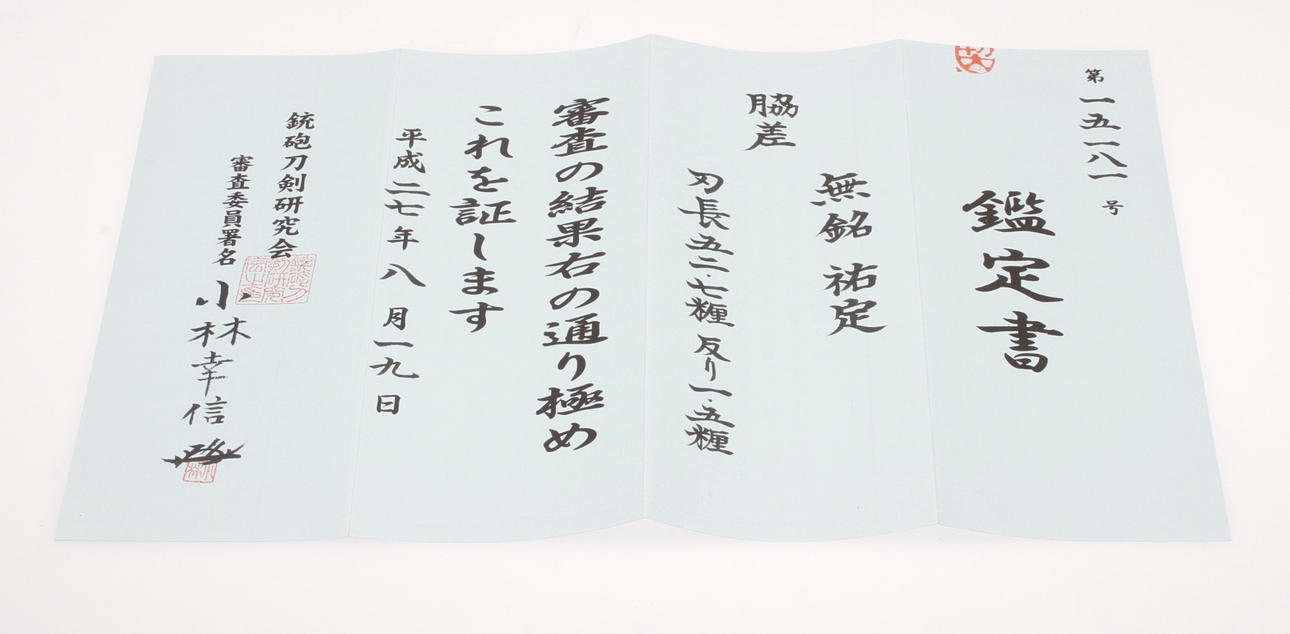 第一五一八一号
鑑定書
無銘 祐定
脇差
刃長五二・七糎 反り一・五糎
審査の結果右の通り極め
これを証します
平成二七年八月一九日
銃砲刀剣研究会
審査委員署名 小林幸信